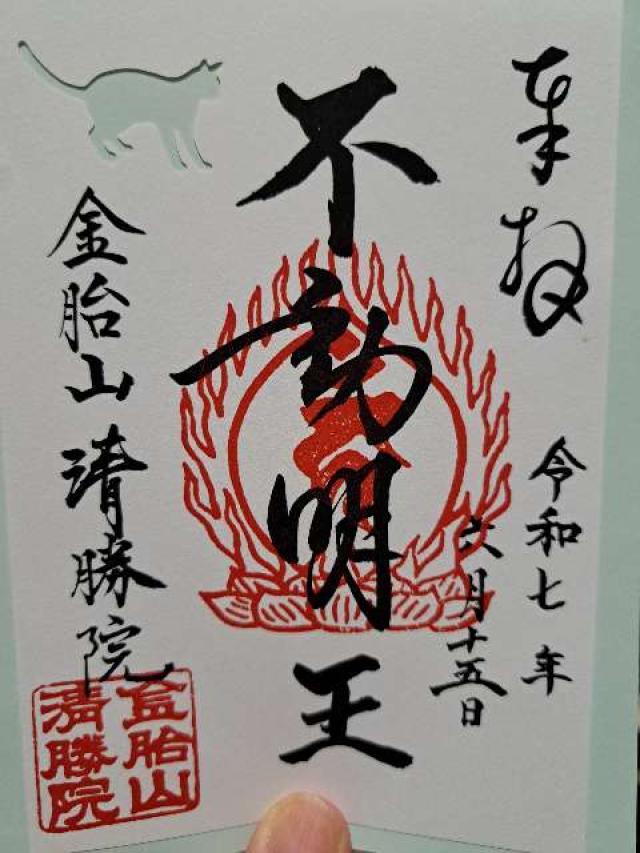 奉拝
令和七年
六月十五日
不動明王
金胎山 清勝院
金胎山
清勝院